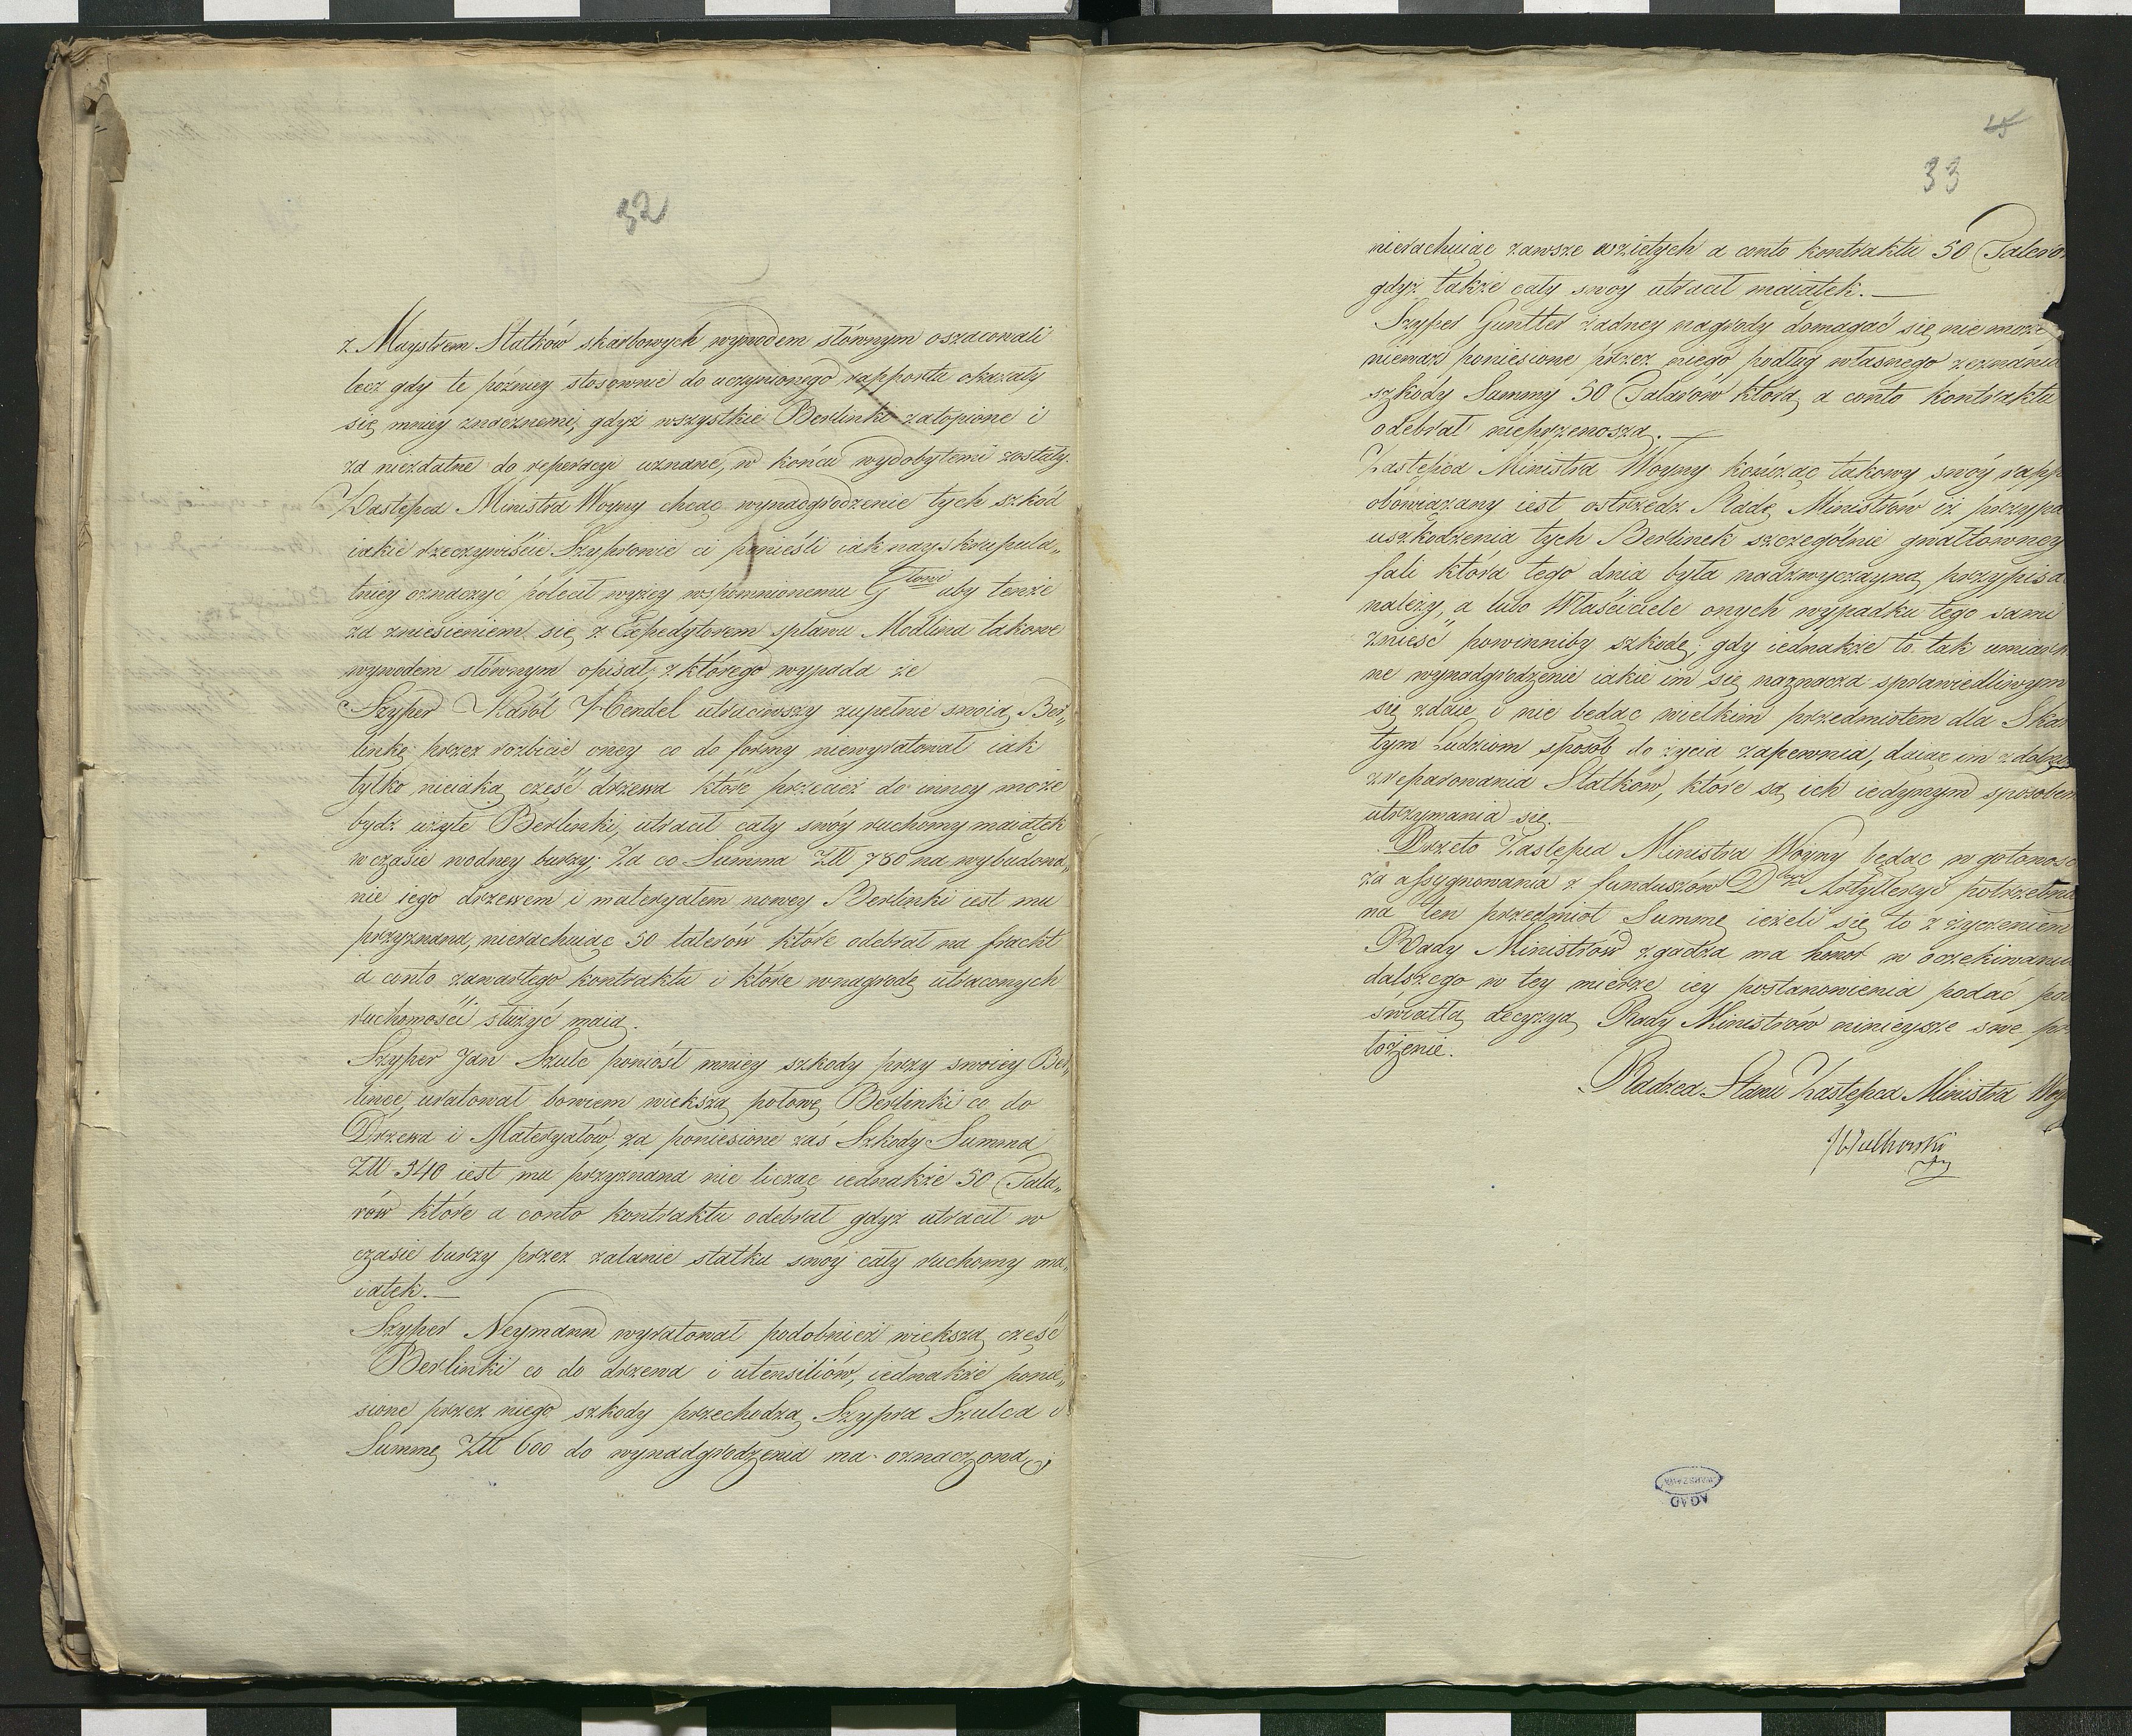 32
z Maystrem Statków skarbowych wywodem słównym oszacowali
lecz gdy te poźniey stosownie do uczynionego rapportu okazały
się mniey znacznemi, gdyż wszystkie Berlinki zatopione i
za niezdatne do reperacyi uznane, w końcu wydobytemi zostały.
Zastępca Ministra Woyny chcąc wynadgrodzenie tych szkód
iakie rzeczywiście Szyprowie ci ponieśli iak nayskrupula„
tniey oznaczyć polecił wyżey wspomnionemu aby tenże
za zniesieniem się z Expedytorem spławu Modlina takowe
wywodem słównym opisał, z którego wypada że
Szyper Karól Hendel utraciwszy zupełnie swoią Ber„
linkę przez rozbicie oney co do formy niewyratował iak
tylko nieiaką część drzewa które przecież do inney może
bydź użyte Berlinki, utracił cały swóy ruchomy maiątek
w czasie wodney burzy; Za co Summa Złł 780 na wybudowa„
nie iego drzewem i materyałem nowey Berlinki iest mu
przyznana, nierachuiąc 50 talerów które odebrał na fracht
a conto zawartego kontraktu i które w nagrodę utraconych
ruchomości służyć maią.
Szyper Jan Szulc poniósł mniey szkody przy swoiey Ber„
lince, uratował bowiem większą połowę Berlinki co do
Drzewa i Materyałów, za poniesione zaś Szkody Summa
Złł 340 iest mu przyznana nie licząc iednakże 50 Tala„
rów które a conto kontraktu odebrał gdyż utracił w
czasie burzy przez zalanie statku swóy cały ruchomy ma„
iątek.—
Szyper Neymann wyratował podobnież większą część
Berlinki co do drzewa i utensiliów, iednakże ponie„
sione przez niego szkody przechodzą Szypra Szulca i
Summę Złł 600 do wynadgrodzenia ma oznaczoną
33
nierachuiąc zawsze wziętych a conto kontraktu 50 Talero
gdyż także cały swóy utracił maiątek.—
Szyper Guntter żadney nagrody domagać się nie może
niemasz poniesione przez niego podług własnego zeznania
szkody Summy 50 Talarów którą a conto kontraktu
odebrał nieprzenoszą.—
Zastępca Ministra Woyny kończąc takowy swóy rapp
obowiązany iest ostrzedz Radę Ministrów iż przypa
uszkodzenia tych Berlinek szczególnie gwałtowney
fali która tego dnia była nadzwyczayną przypisa
należy, a lubo Właściciele onych wypadku tego sami
znieść powinniby szkodę; gdy iednakże to tak umiark
ne wynadgrodzenie iakie im się naznacza sprawiedliwym
się zdaie i nie będąc wielkim przedmiotem dla Skar
tym Ludziom sposób do życia zapewnia, daiąc im
zreparowania Statków, które są ich iedynym sposobem
utrzymania się.—
Przeto Zastępca Ministra Woyny będąc w gotowośc
za assygnowania z funduszów Artylleryi potrzebną
na ten przedmiot Summę ieżeli się to z życzeniem
Rady Ministrów zgadza ma honor w oczekiwaniu
dalszego w tey mierze iey postanowienia podać po
światłą decyzyą Rady Ministrów ninieysze swe prz
łożenie.
Radzca Stanu Zastępca Ministra Woy
AGAD
WARSZAWA